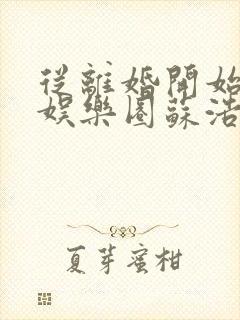 從離婚開始
娛樂圈蘇浩
夏芽蜜柑